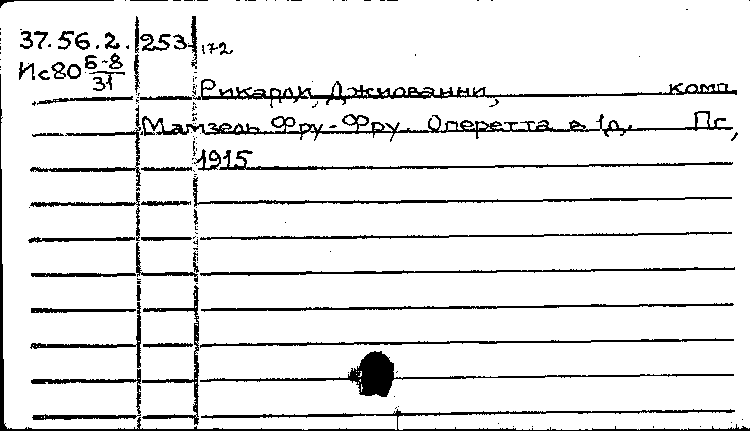 37.56.2. 253 172
Ис80 Б-8/31
Рикарди, Джиованни, комп.
Мамзель Фру-Фру. Оперетта в 1д. Пг,
1915